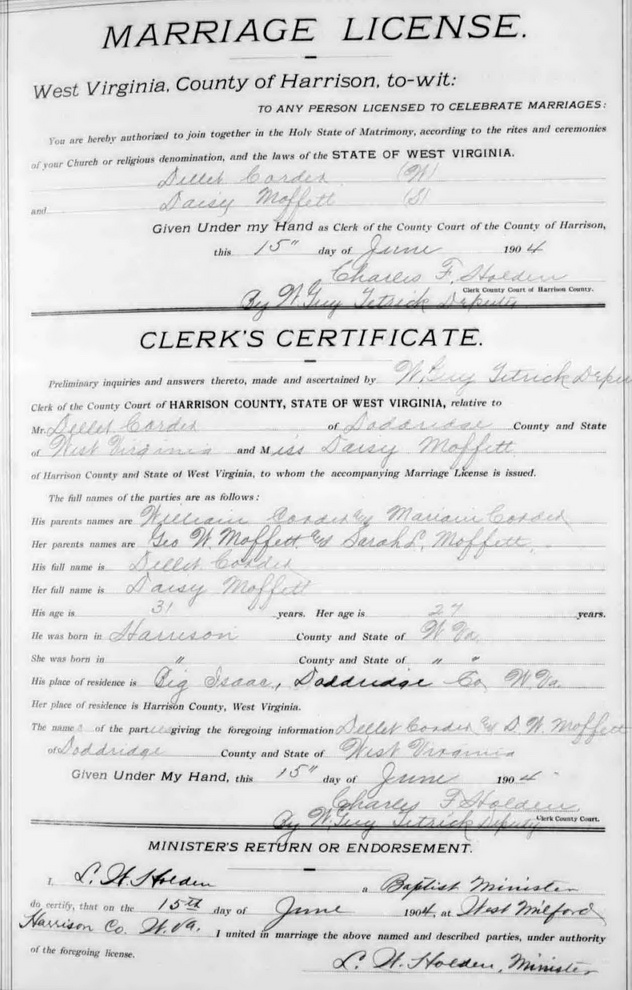 MARRIAGE LICENSE.
West Virginia, County of Harrison, to-wit:
TO ANY PERSON LICENSED TO CELEBRATE MARRIAGES:
You are hereby authorized to join together in the Holy State of Matrimony, according to the rites and ceremonies
of your Church or religious denomination, and the laws of the STATE OF WEST VIRGINIA.
Dellet Corder (W)
and Daisy Moffett (S)
Given Under my Hand as Clerk of the County Court of the County of Harrison,
this 15" day of June 1904
Charles F. Holden
Clerk County Court of Harrison County.
By W. Guy Tetrick Deputy
CLERK'S CERTIFICATE.
Preliminary inquiries and answers thereto, made and ascertained by W. Guy Tetrick Deputy
Clerk of the County Court of HARRISON COUNTY, STATE OF WEST VIRGINIA, relative to
Mr. Dellet Corder of Doddridge County and State
of West Virginia and Miss Daisy Moffett
of Harrison County and State of West Virginia, to whom the accompanying Marriage License is issued.
The full names of the parties are as follows:
His parents names are William Corder & Mariam Corder
Her parents names are Geo W. Moffett & Sarah L. Moffett.
His full name is Dellet Corder
Her full name is Daisy Moffett
His age is 31 years. Her age is 27 years.
He was born in Harrison County and State of W Va.
She was born in " County and State of " "
His place of residence is Big Isaac, Doddridge Co, W. Va
Her place of residence is Harrison County, West Virginia.
The names of the parties giving the foregoing information Dellet Corder & D. W. Moffett
of Doddridge County and State of West Virginia
Given Under My Hand, this 15" day of June 1904
Charles F. Holden
Clerk County Court.
By W. Guy Tetrick Deputy
MINISTER'S RETURN OR ENDORSEMENT.
I, L. W. Holden a Baptist Minister
do certify, that on the 15th day of June 1904, at West Milford
Harrison Co. W. Va. I united in marriage the above named and described parties, under authority
of the foregoing license.
L. W. Holden, Minister